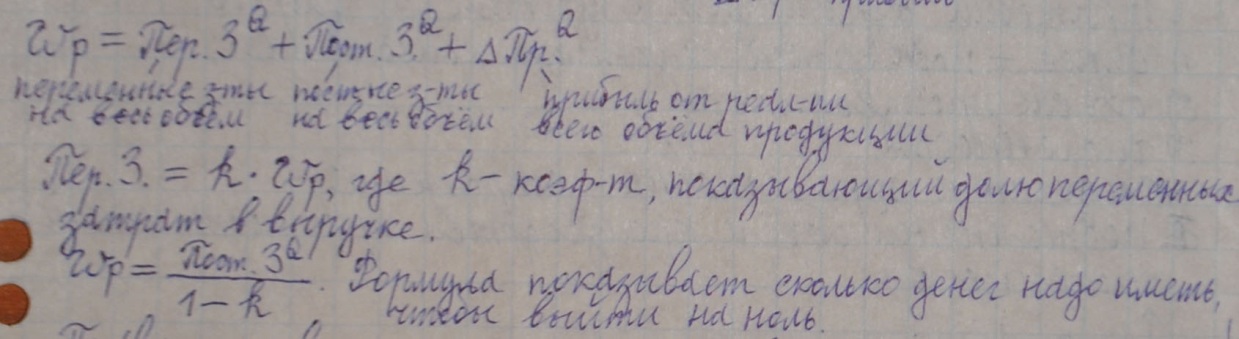 Wp = Пер. З.^Q + Пост. З.^Q + Δ Пр.^Q
переменные з-ты постные з-ты прибыль от реал-ии
на весь объём на весь объём всего объёма продукции
Пер. З. = k · Wp, где k - коэф-т, показывающий долю переменных
затрат в выручке.
Wp = Пост. З^Q / 1 - k . Формула показывает сколько денег надо иметь,
чтобы выйти на ноль.